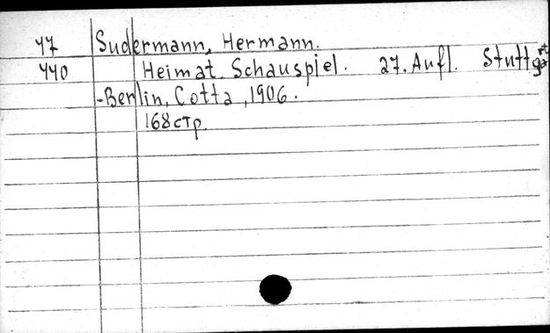 У7 Sudermann, Hermann.
У40 Heimat. Schauspiel. 27. Aufl. Stuttgart
-Berlin, Cotta, 1906.
168 стр.